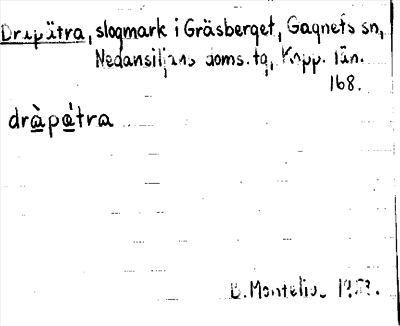 Dräpätra, slogmark i Gräsberget, Gagnefs sn,
Nedansiljans doms. tg, Kopp. län.
168.
dràpátra
B. Montelius